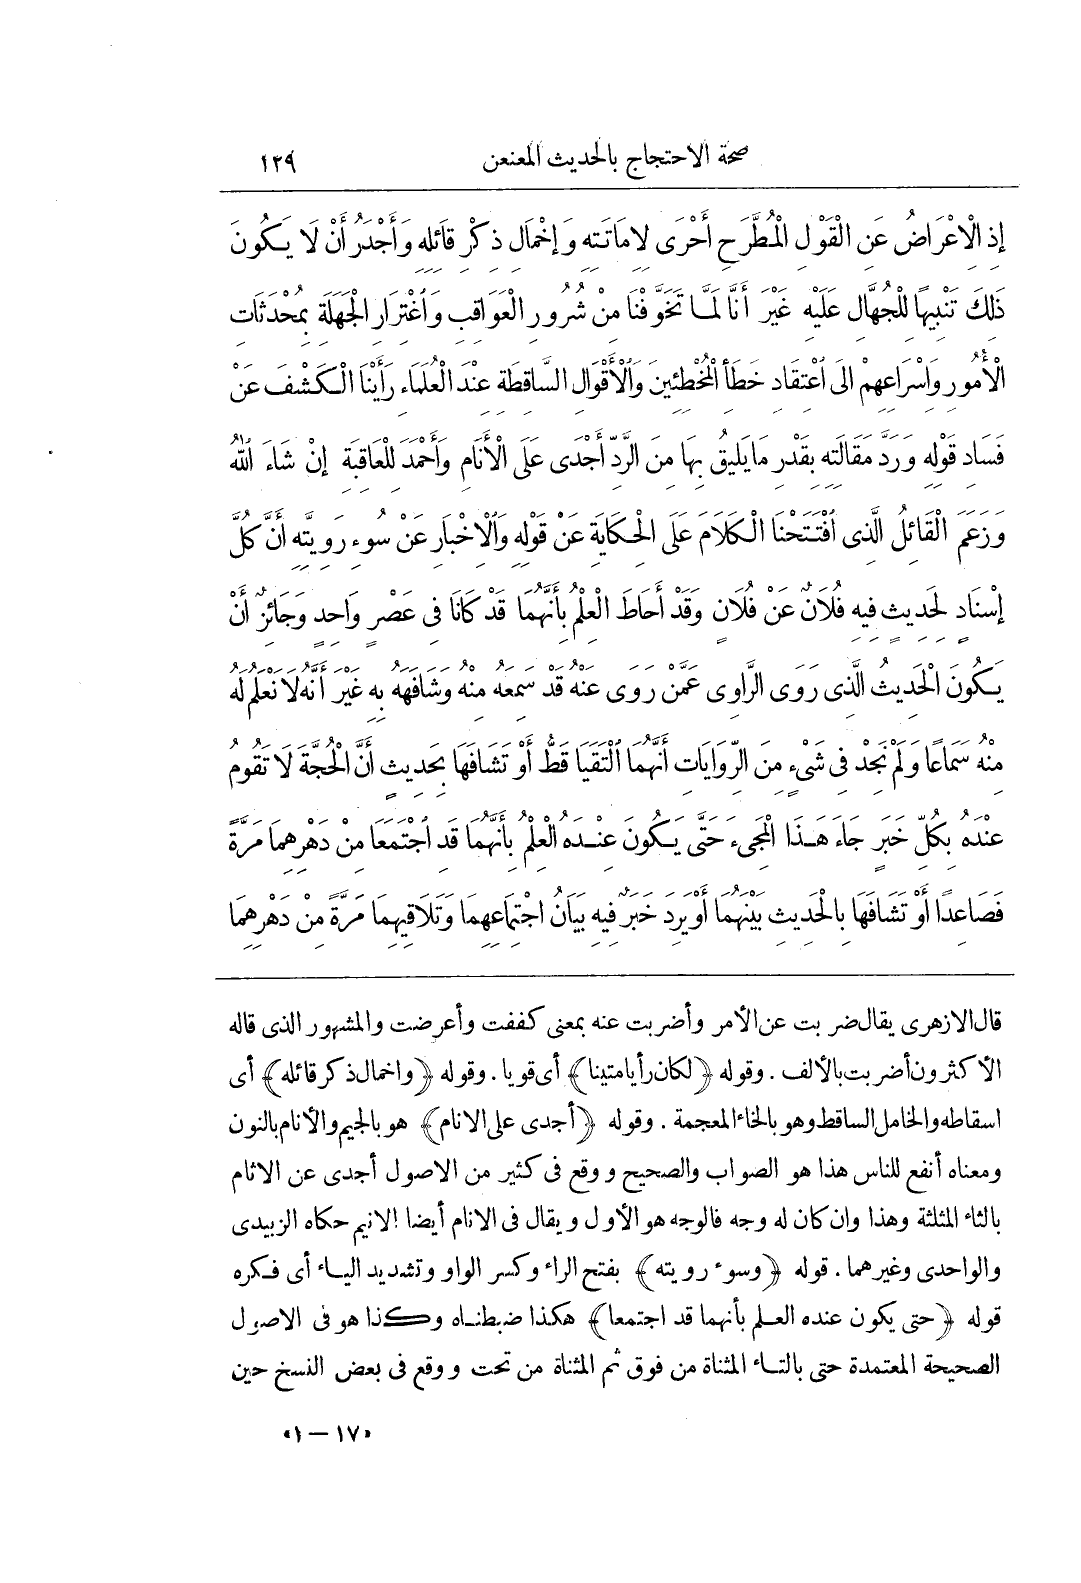 صحة الاحتجاج بالحديث المعنعن ١٢٩
إِذِ الْاِعْرَاضُ عَنِ الْقَوْلِ الْمُطَّرَحِ أَحْرَى لِامَاتَتِهِ وَإِخْمَالِ ذِكْرِ قَائِلِهِ وَأَجْدَرُ أَنْ لَا يَكُونَ
ذَلِكَ تَنْبِيهًا لِلْجُهَّالِ عَلَيْهِ غَيْرَ أَنَّا لَمَّا تَخَوَّفْنَا مِنْ شُرُورِ الْعَوَاقِبِ وَٱغْتِرَارِ الْجَهَلَةِ بِمُحْدَثَاتِ
الْأُمُورِ وَاِسْرَاعِهِمْ اِلَى ٱعْتِقَادِ خَطَأِ الْمُخْطِئِينَ وَالْأَقْوَالِ السَّاقِطَةِ عِنْدَ الْعُلَمَاءِ رَأَيْنَا الْكَشْفَ عَنْ
فَسَادِ قَوْلِهِ وَرَدَّ مَقَالَتِهِ بِقَدْرِ مَا يَلِيقُ بِهَا مِنَ الرَّدِّ أَجْدَى عَلَى الْأَنَامِ وَأَحْمَدَ لِلْعَاقِبَةِ إِنْ شَاءَ ٱللّٰهُ
وَزَعَمَ الْقَائِلُ الَّذِى ٱفْتَتَحْنَا الْكَلَامَ عَلَى الْحِكَايَةِ عَنْ قَوْلِهِ وَالْاِخْبَارِ عَنْ سُوءِ رَوِيَّتِهِ أَنَّ كُلَّ
إِسْنَادٍ لِحَدِيثٍ فِيهِ فُلَانٌ عَنْ فُلَانٍ وَقَدْ أَحَاطَ الْعِلْمُ بِأَنَّهُمَا قَدْ كَانَا فِى عَصْرٍ وَاحِدٍ وَجَائِزٌ أَنْ
يَكُونَ الْحَدِيثُ الَّذِى رَوَى الرَّاوِى عَمَّنْ رَوَى عَنْهُ قَدْ سَمِعَهُ مِنْهُ وَشَافَهَهُ بِهِ غَيْرَ أَنَّهُ لَا نَعْلَمُ لَهُ
مِنْهُ سَمَاعًا وَلَمْ نَجِدْ فِى شَىْءٍ مِنَ الرِّوَايَاتِ أَنَّهُمَا ٱلْتَقَيَا قَطُّ أَوْ تَشَافَهَا بِحَدِيثٍ أَنَّ الْحُجَّةَ لَا تَقُومُ
عِنْدَهُ بِكُلِّ خَبَرٍ جَاءَ هَذَا الْمَجِىءَ حَتَّى يَكُونَ عِنْدَهُ الْعِلْمُ بِأَنَّهُمَا قَدِ ٱجْتَمَعَا مِنْ دَهْرِهِمَا مَرَّةً
فَصَاعِدًا أَوْ تَشَافَهَا بِالْحَدِيثِ بَيْنَهُمَا أَوْ يَرِدَ خَبَرٌ فِيهِ بَيَانُ اجْتِمَاعِهِمَا وَتَلَاقِيهِمَا مَرَّةً مِنْ دَهْرِهِمَا
قال الازهرى يقال ضربت عن الأمر وأضربت عنه بمعنى كففت وأعرضت والمشهور الذى قاله
الأكثرون أضربت بالألف . وقوله ﴿لكان رأيا متينا﴾ أى قويا . وقوله ﴿واخمال ذكر قائله﴾ أى
اسقاطه والخامل الساقط وهو بالخاء المعجمة . وقوله ﴿أجدى على الانام﴾ هو بالجيم والأنام بالنون
ومعناه أنفع للناس هذا هو الصواب والصحيح ووقع فى كثير من الاصول أجدى عن الاثام
بالثاء المثلثة وهذا وان كان له وجه فالوجه هو الأول ويقال فى الانام أيضا الانيم حكاه الزبيدى
والواحدى وغيرهما . قوله ﴿وسوء رويته﴾ بفتح الراء وكسر الواو وتشديد الياء أى فكره
قوله ﴿حتى يكون عنده العلم بأنهما قد اجتمعا﴾ هكذا ضبطناه وكذا هو فى الاصول
الصحيحة المعتمدة حتى بالتاء المثناة من فوق ثم المثناة من تحت ووقع فى بعض النسخ حين
«١٧ – ١»